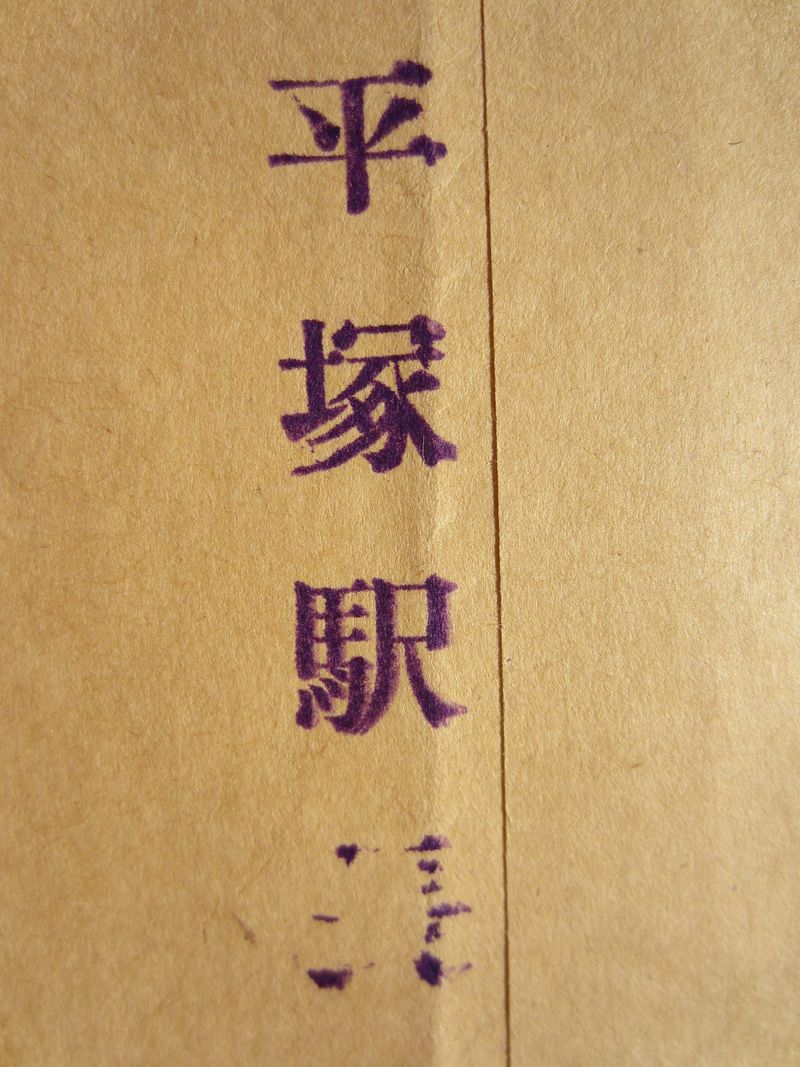 平塚駅